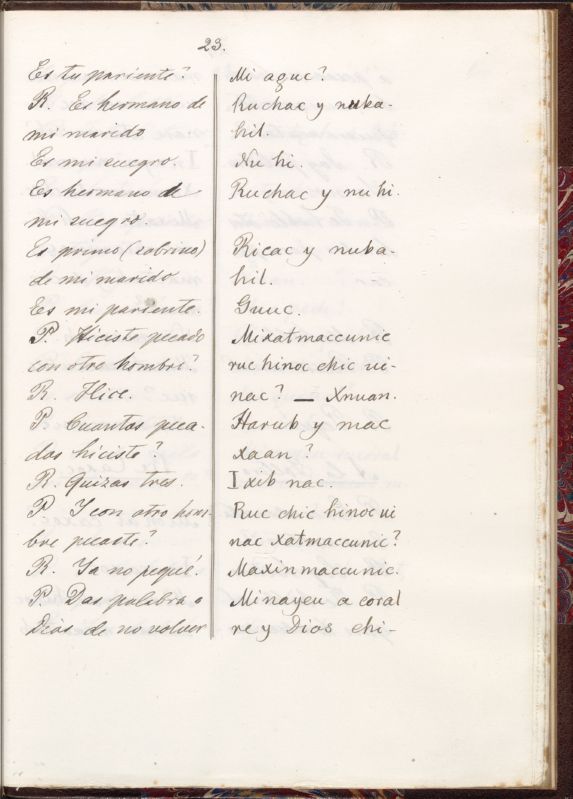 23.
Es tu pariente?
R. Es hermano de
mi marido
Es mi suegro.
Es hermano de
mi suegro
Es primo (sobrino)
de mi marido
Es mi pariente.
P. Hiciste pecado
con otro hombre?
R. Hice.
P. Cuantos peca-
dos hiciste?
R. Quizas tres.
P. Y con otro hom-
bre pecaste?
R. Ya no pequé.
P. Das palabra a
Dios de no volver
Mi aguc?
Ruchac y nuba-
hil.
Nu hi.
Ruchac y nuhi.
Ricac y nuba-
hil.
Guuc.
Mixatmaccunic
ruc hinoc chic ui-
nac? — Xnuan.
Harub y mac
xaan?
Ixib nac.
Ruc chic hinoc ui
nac xatmaccunic?
Maxinmaccunic.
Minayeu a coral
re y Dios chi-